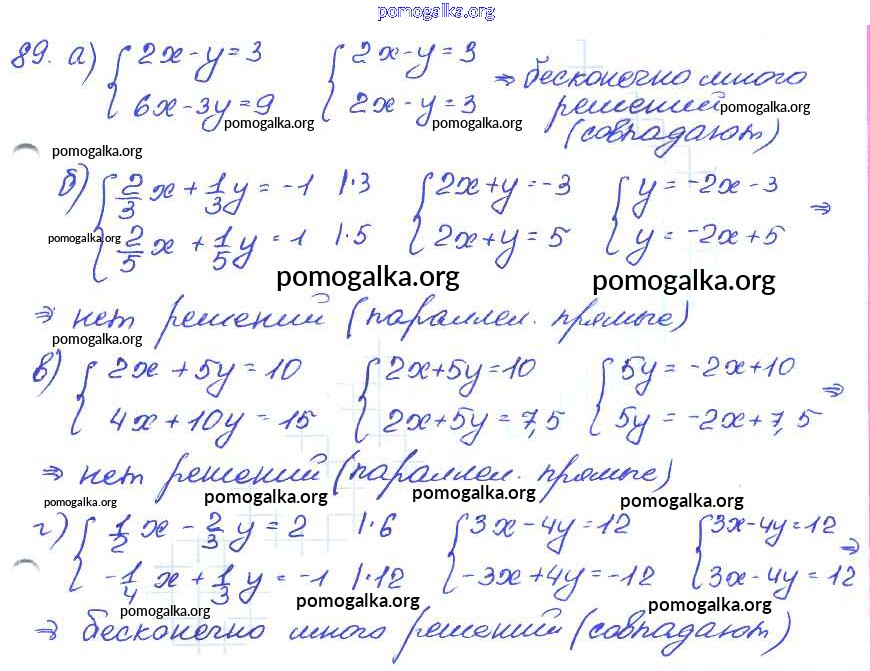 pomogalka.org
89. а) { 2x - y = 3 { 2x - y = 3 ⇒ бесконечно много
{ 6x - 3y = 9 { 2x - y = 3 решений
pomogalka.org pomogalka.org pomogalka.org
(совпадают)
pomogalka.org
б) { 2/3 x + 1/3 y = -1 |·3 { 2x + y = -3 { y = -2x - 3 ⇒
{ 2/5 x + 1/5 y = 1 |·5 { 2x + y = 5 { y = -2x + 5
pomogalka.org
pomogalka.org pomogalka.org
⇒ нет решений (параллел. прямые)
pomogalka.org
в) { 2x + 5y = 10 { 2x + 5y = 10 { 5y = -2x + 10 ⇒
{ 4x + 10y = 15 { 2x + 5y = 7,5 { 5y = -2x + 7,5
⇒ нет решений (параллел. прямые)
pomogalka.org pomogalka.org pomogalka.org pomogalka.org
г) { 1/2 x - 2/3 y = 2 |·6 { 3x - 4y = 12 { 3x - 4y = 12 ⇒
{ -1/4 x + 1/3 y = -1 |·12 { -3x + 4y = -12 { 3x - 4y = 12
pomogalka.org pomogalka.org pomogalka.org
⇒ бесконечно много решений (совпадают)